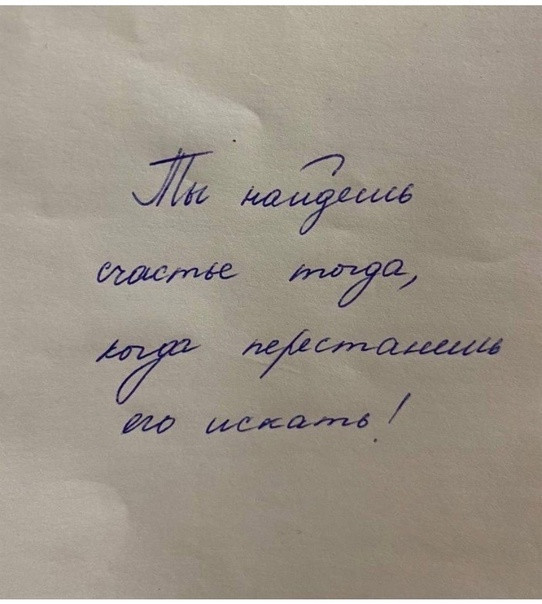 Ты найдешь
счастье тогда,
когда перестанешь
его искать!